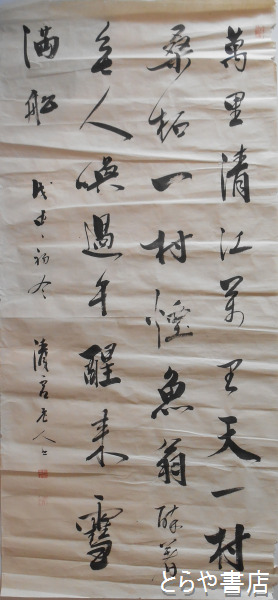 萬里清江萬里天一村
桑柘一村煙魚翁醉着
無人喚過午醒來雪
滿船
初冬
老人
とらや書店